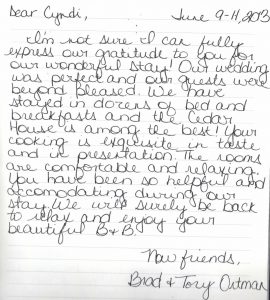 Dear Cyndi, June 9-11, 2013
I'm not sure I can fully
express our gratitude to you for
our wonderful stay! Our wedding
was perfect and our guests were
beyond pleased. We have
stayed in dozens of bed and
breakfasts and the Cedar
House is among the best! Your
cooking is exquisite in taste
and in presentation. The rooms
are comfortable and relaxing.
You have been so helpful and
accomodating during our
stay. We will surely be back
to relax and enjoy your
beautiful B&B.
New friends,
Brad & Tory Outman